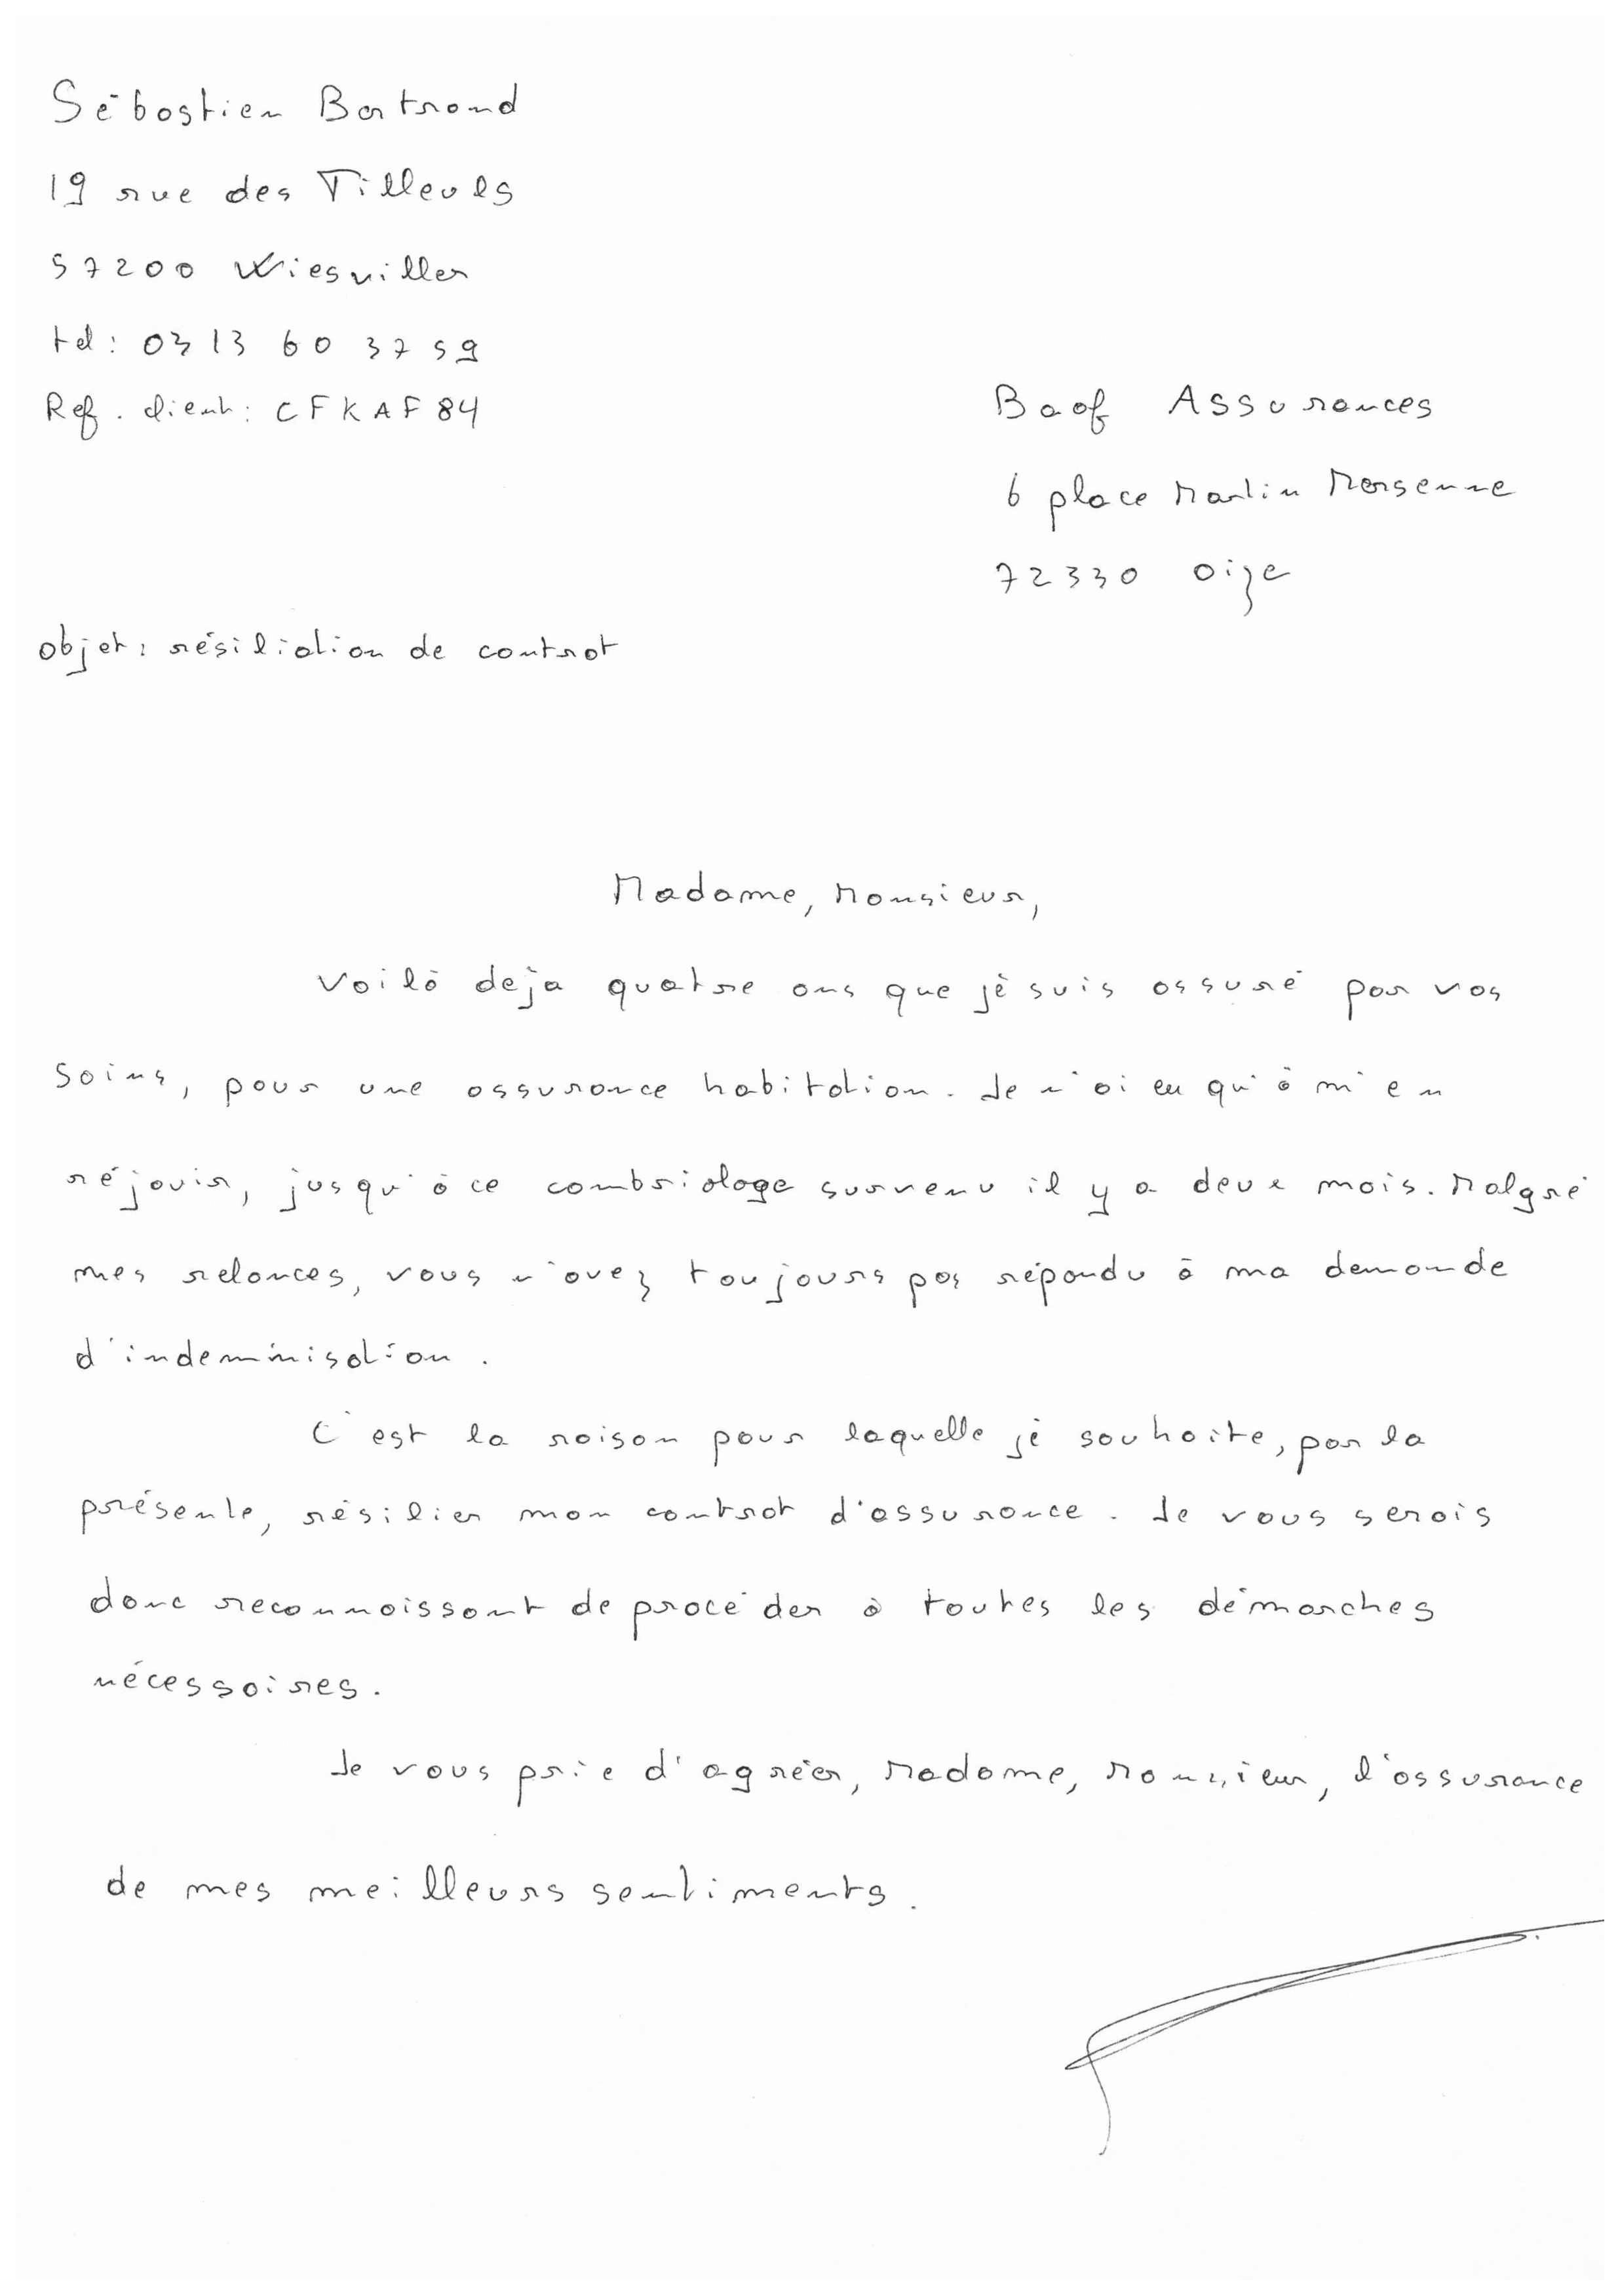 Sébastien Bartrand
19 rue des Tilleuls
57200 Wiesviller
tel : 03 13 60 37 59
Ref. client : CFKAF84
Baaf Assurances
6 place Marlin Mersenne
72330 Oize
objet : résiliation de contrat
Madame, Monsieur,
Voilà deja quatre ans que je suis assuré par vos
soins, pour une assurance habitation. Je n'ai eu qu'à m'en
réjouir, jusqu'à ce cambriolage survenu il y a deux mois. Malgré
mes relances, vous n'avez toujours pas répondu à ma demande
d'indemnisation.
C'est la raison pour laquelle je souhaite, par la
présente, résilier mon contrat d'assurance. Je vous serais
donc reconnaissant de procéder à toutes les démarches
nécessaires.
Je vous prie d'agréer, Madame, Monsieur, l'assurance
de mes meilleurs sentiments.